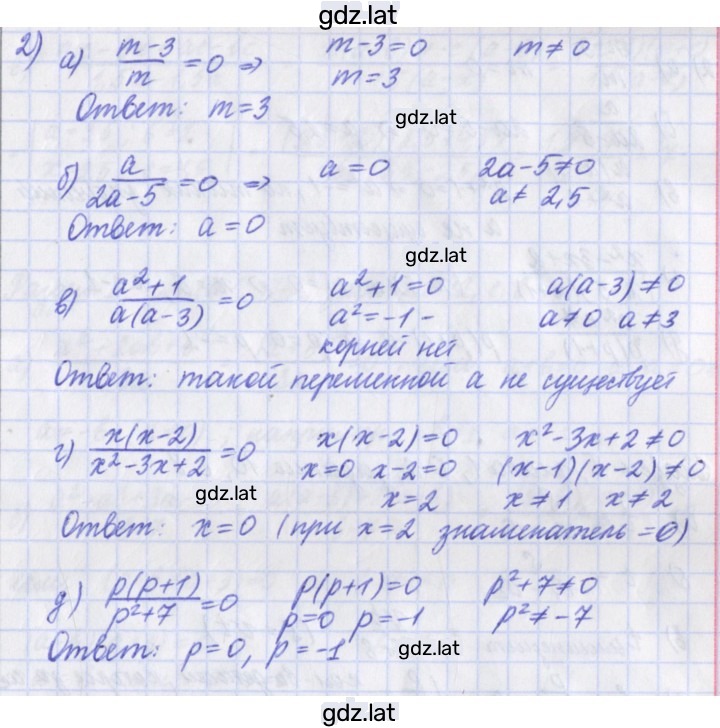 gdz.lat
2) а) (m-3)/m = 0 ⇒ m-3=0 m≠0
m=3
Ответ: m=3
gdz.lat
б) a/(2a-5) = 0 ⇒ a=0 2a-5≠0
a≠2,5
Ответ: a=0
gdz.lat
в) (a²+1)/(a(a-3)) = 0 a²+1=0 a(a-3)≠0
a²=-1 - a≠0 a≠3
корней нет
Ответ: такой переменной а не существует
г) (x(x-2))/(x²-3x+2) = 0 x(x-2)=0 x²-3x+2≠0
x=0 x-2=0 (x-1)(x-2)≠0
gdz.lat
x=2 x≠1 x≠2
Ответ: x=0 (при x=2 знаменатель =0)
д) (p(p+1))/(p²+7) = 0 p(p+1)=0 p²+7≠0
p=0 p=-1 p²≠-7
Ответ: p=0, p=-1
gdz.lat
gdz.lat